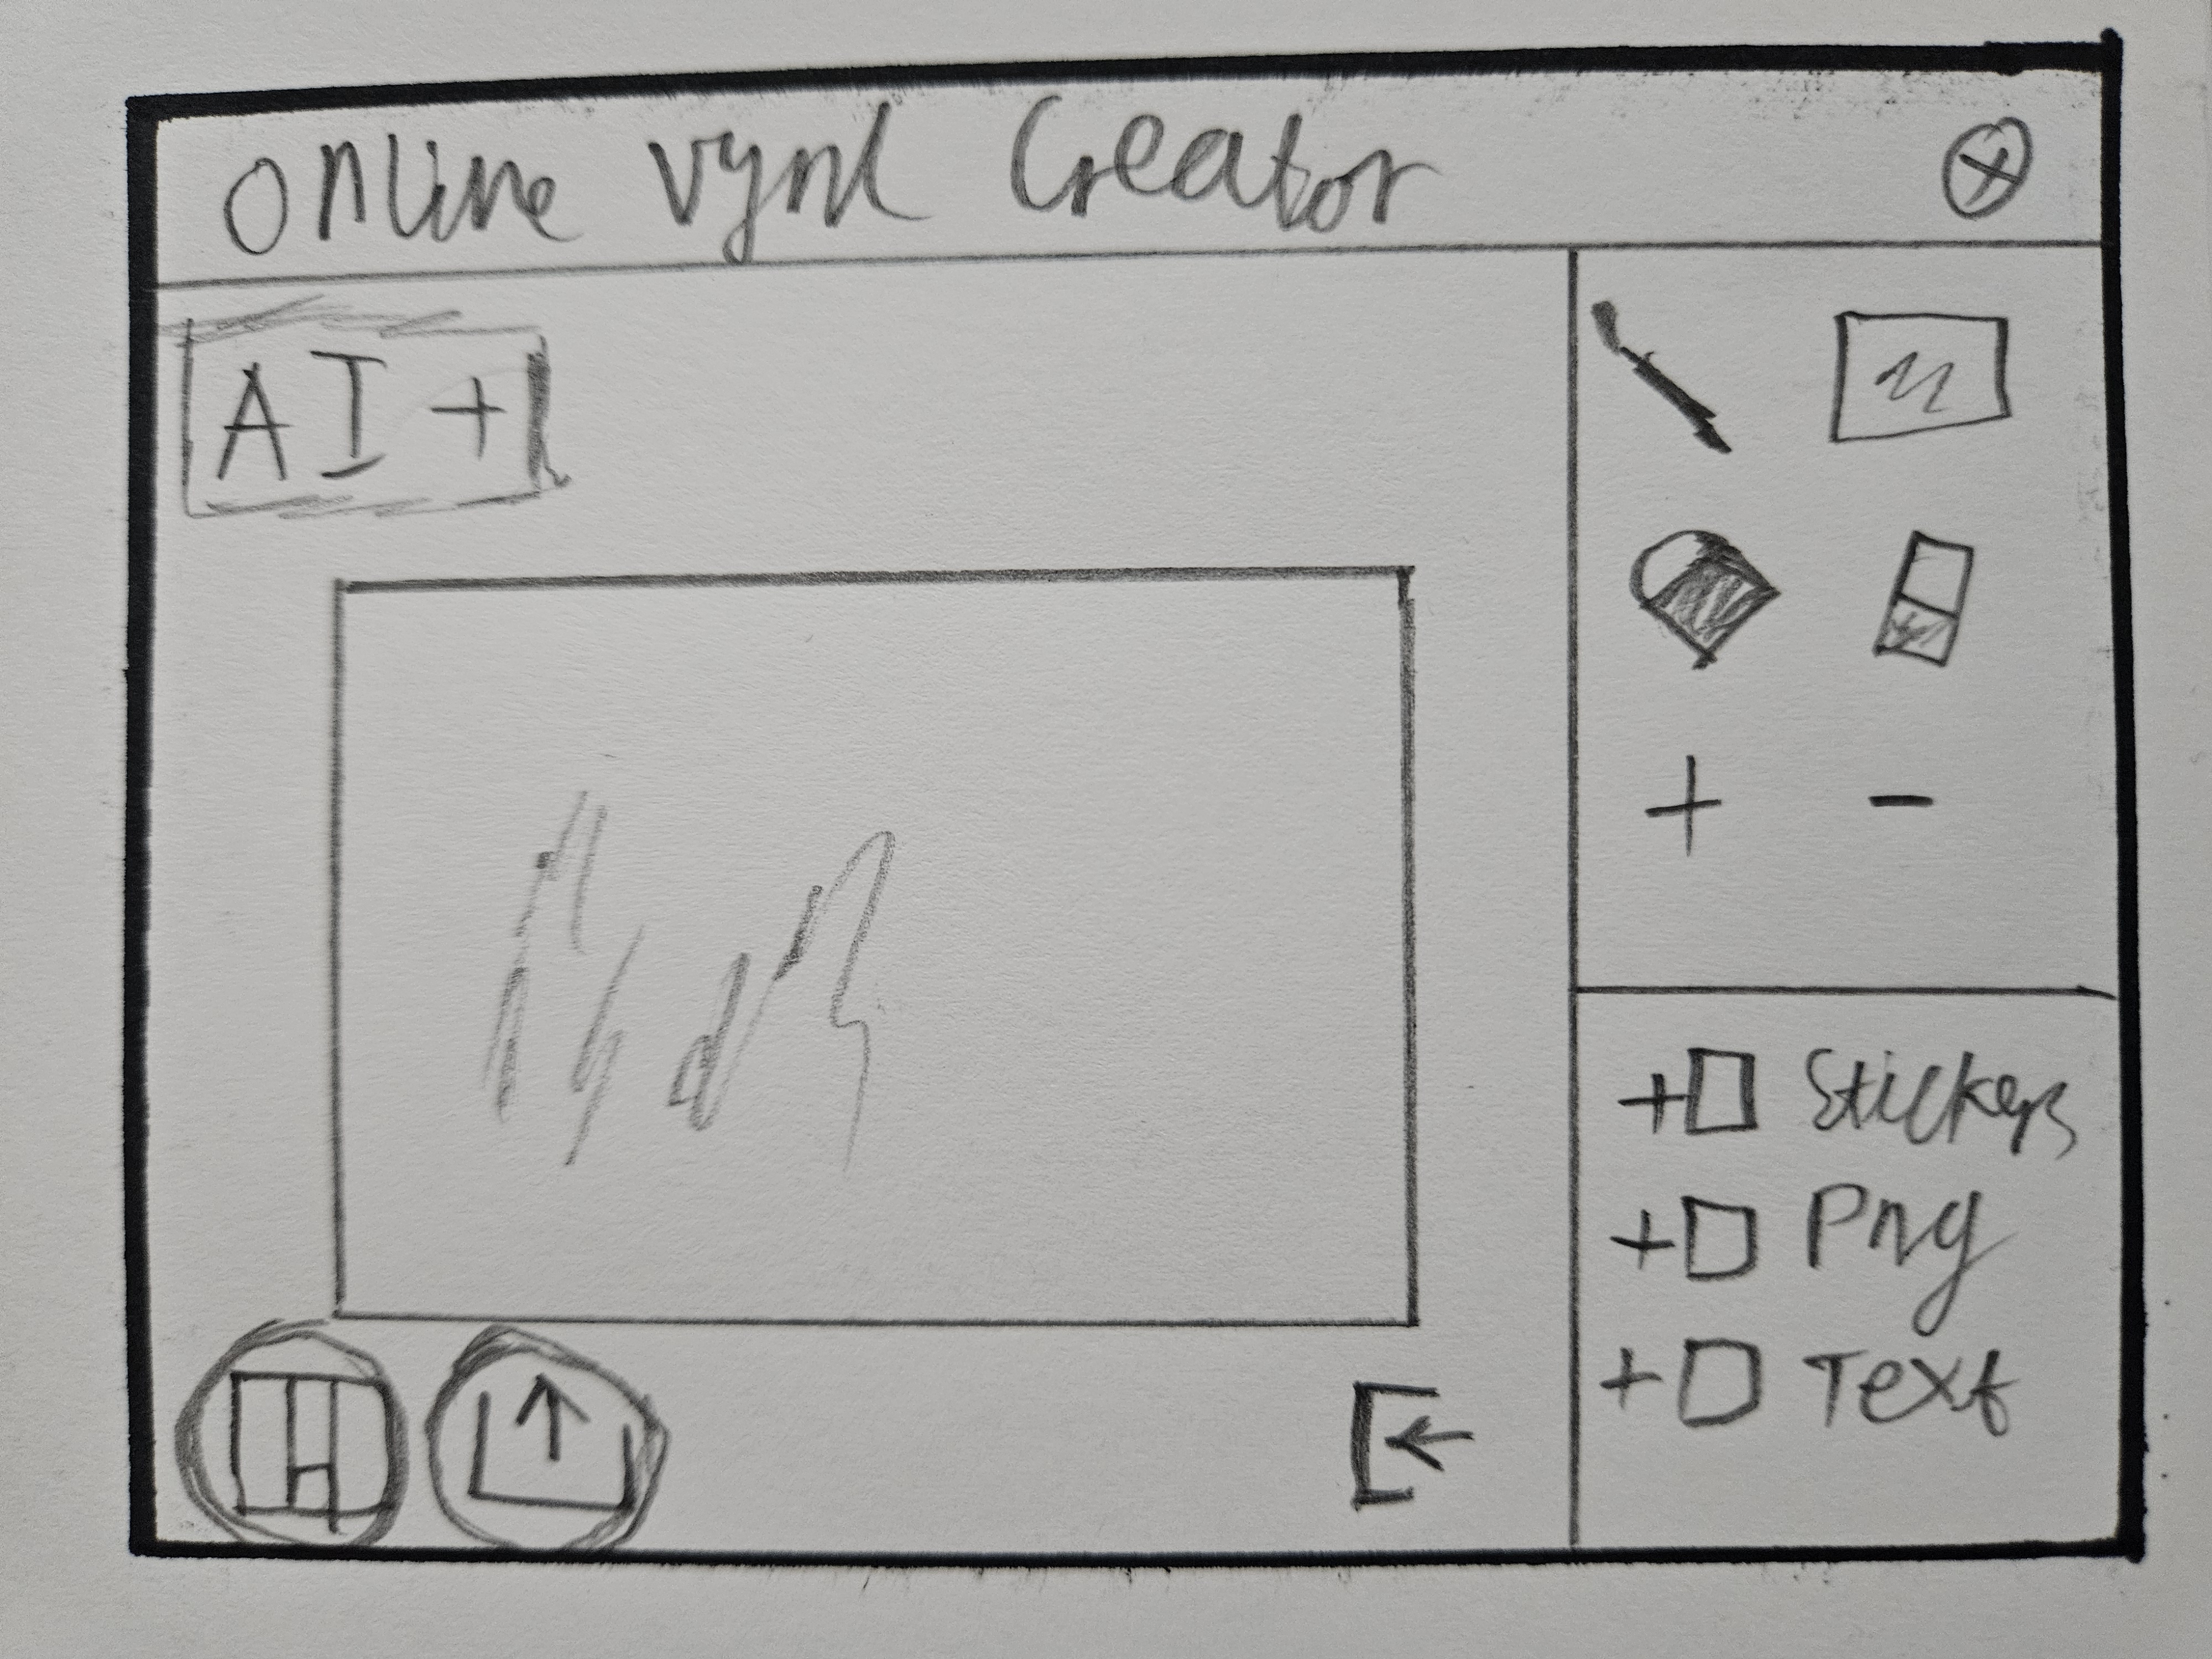 Online Vynl Creator
AI +
+ Stickers
+ Png
+ Text